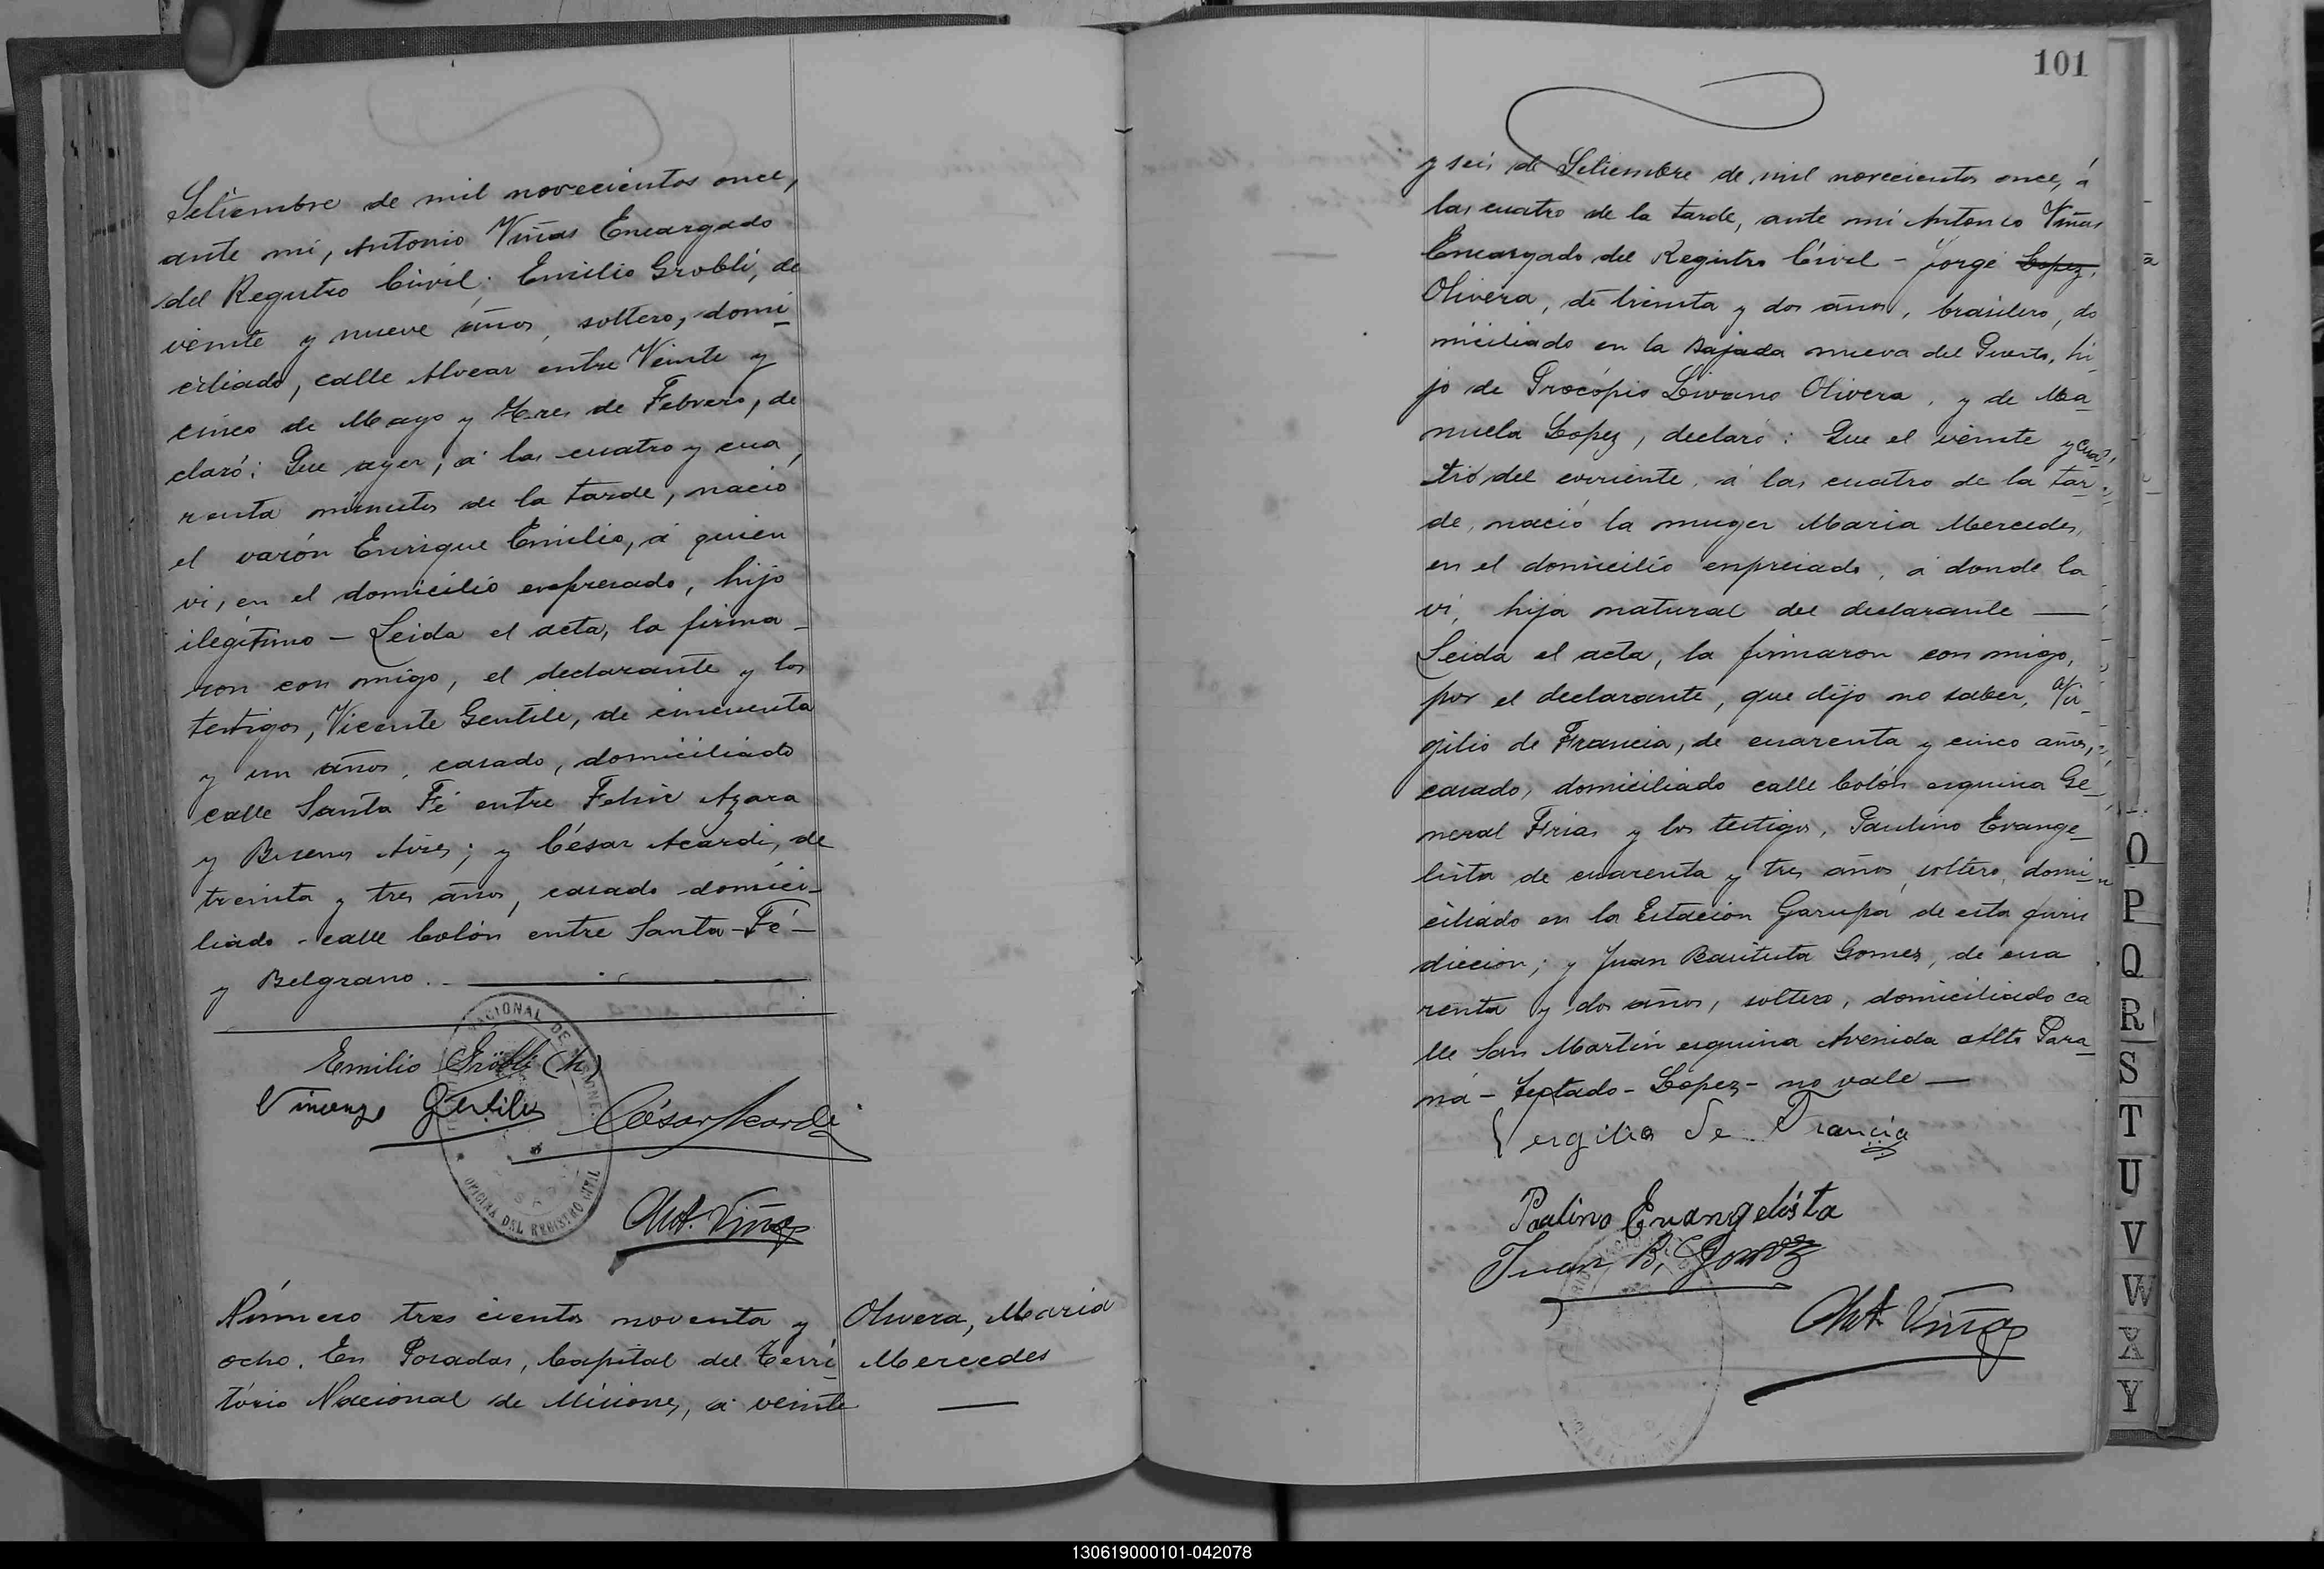 Setiembre de mil novecientos once,
ante mi, Antonio Viñas Encargado
del Registro Civil; Emilio Grobli, de
veinte y nueve años, soltero, domi-
ciliado, calle Alvear entre Veinte y
cinco de Mayo y Tres de Febrero, de
claró: Que ayer, á las cuatro y cua,
renta minutos de la tarde, nació
el varón Enrique Emilio, á quien
vi, en el domicilio expresado, hijo
ilegítimo - Leida el acta, la firma-
ron con migo, el declarante y los
testigos, Vicente Gentile, de cincuenta
y un años, casado, domiciliado
calle Santa Fé entre Felix Azara
y Buenos Aires; y César Acardi, de
treinta y tres años, casado domici-
liado - calle Colón entre Santa-Fé-
y Belgrano.
NACIONAL DE
OFICINA DEL REGISTRO CIVIL
Emilio Gröbli (h)
Vincenzo Gentile
César Acardi
Ant. Viñas
Número tres cientos noventa y
ocho. En Posadas, Capital del Terri-
tório Nacional de Misiones, á veinte
Olivera, Maria
Mercedes
101
y seis de Setiembre de mil novecientos once, á
las cuatro de la tarde, ante mi Antonio Viñas
Encargado del Registro Civil - Jorge Lopez,
Olivera, de treinta y dos años, brasilero, do
miciliado en la Bajada nueva del Puerto, hi-
jo de Procópio Olivera, y de Ma-
nuela Lopez, declaró: Que el veinte y cua,
tro del corriente, á las cuatro de la tar-
de, nació la muger Maria Mercedes,
en el domicilio expresado, á donde la
vi, hija natural del declarante
Leida el acta, la firmaron con migo,
por el declarante, que dijo no saber, Vir-
gilio de Francia, de cuarenta y cinco años,
casado, domiciliado calle Colón esquina Ge-
neral Frias y los testigos, Paulino Evange-
lista de cuarenta y tres años, soltero, domi-
ciliado en la Estación Garupá de esta juris
dicción; y Juan Bautista Gomez, de cua
renta y dos años, soltero, domiciliado ca
lle San Martin esquina Avenida Alto Para-
ná - Testado - Lopez - no vale -
Vergilio de Francia
Paulino Evangelista
Juan B. Gomez
Ant. Viñas
O
P
Q
R
S
T
U
V
W
X
Y
130619000101-042078